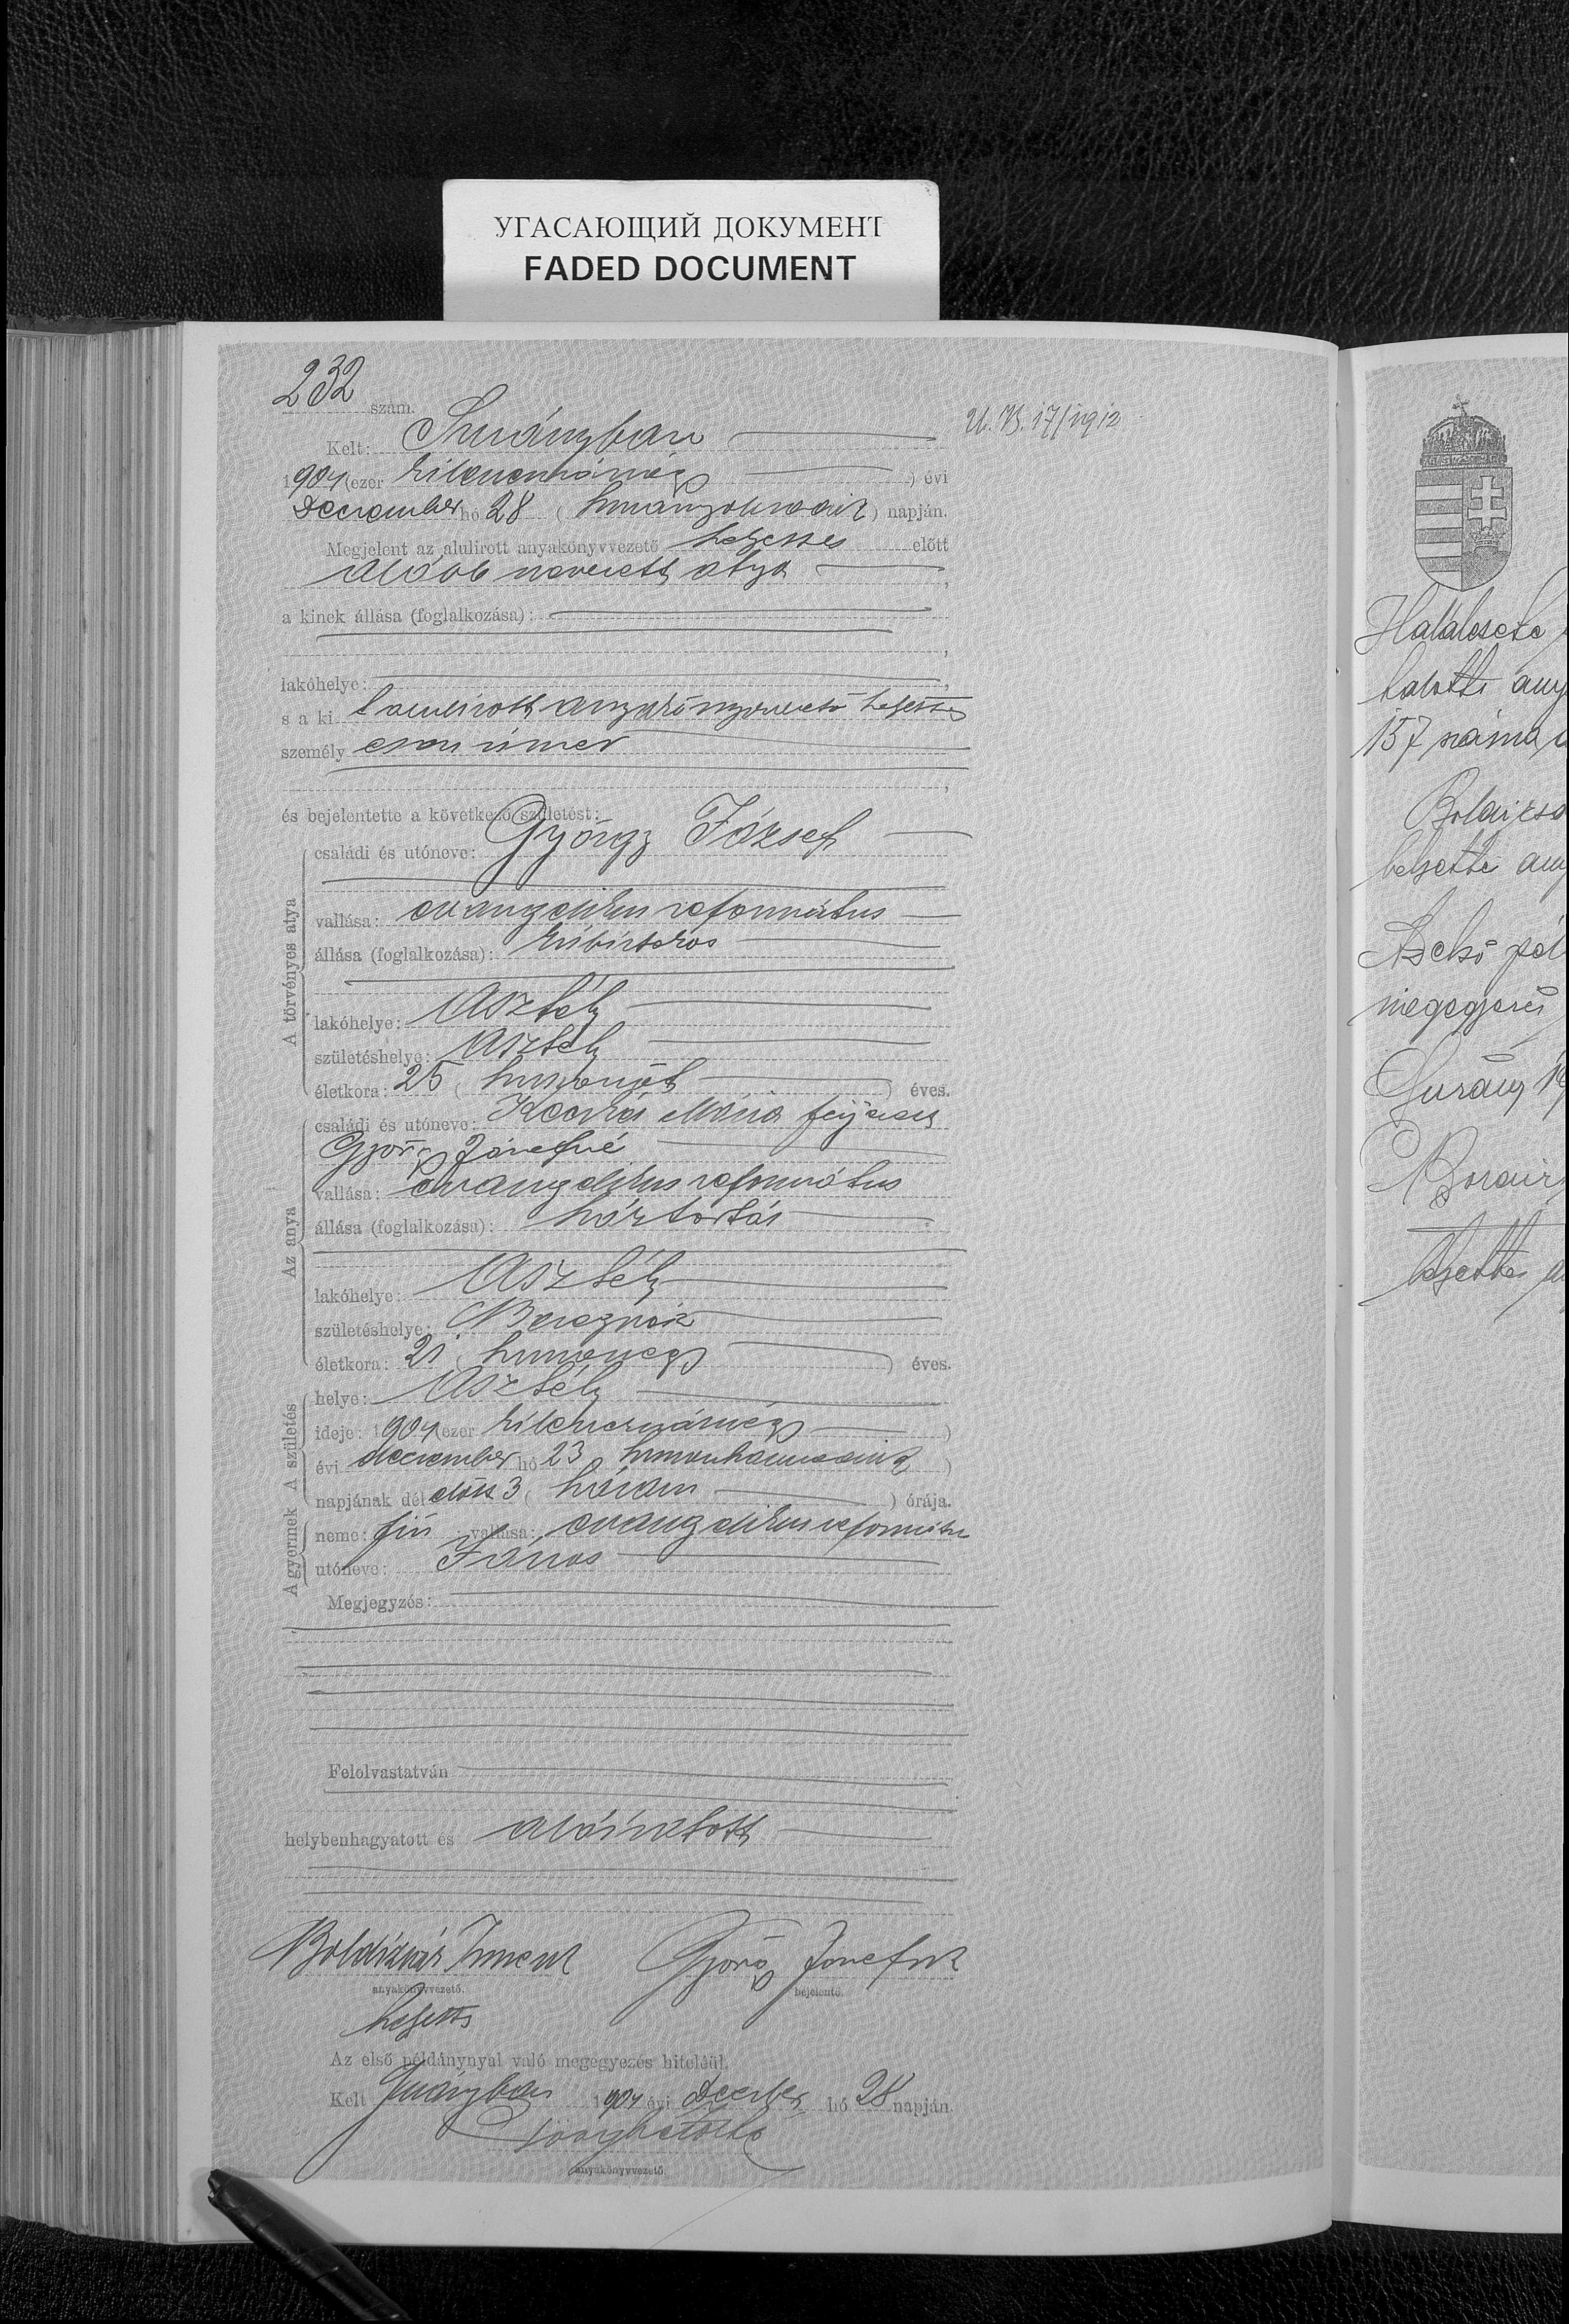 УГАСАЮЩИЙ ДОКУМЕНТ
FADED DOCUMENT
232 szám.
U. B. 17/1912
Kelt: Surányban
1901 (ezer kilenczszázegy) évi
December hó 28 (huszonnyolczadik) napján.
Megjelent az alulirott anyakönyvvezető helyettes előtt
alább nevezett atya,
a kinek állása (foglalkozása):
,
lakóhelye: ,
s a ki alulirott anyakönyvvezető helyettes
személyesen ismer
,
és bejelentette a következő születést:
A törvényes atya
családi és utóneve: György József
vallása: evangelikus református
állása (foglalkozása): kisbirtokos
lakóhelye: Asztély
születéshelye: Asztély
életkora: 25 (huszonöt) éves.
Az anya
családi és utóneve: Mária férjezett
György Józsefné
vallása: evangelikus református
állása (foglalkozása): háztartás
lakóhelye: Asztély
születéshelye:
életkora: 21 (huszonegy) éves.
A születés
helye: Asztély
ideje: 1901 (ezer kilenczszázegy)
évi december hó 23 huszonharmadik)
napjának dél előtt 3 (három) órája.
A gyermek
neme: fiú vallása: evangelikus református
utóneve: János
Megjegyzés:
Felolvastatván
helybenhagyatott és aláíratott
Boldizsár Imre György József
anyakönyvvezető. bejelentő.
helyettes
Az első példánynyal való megegyezés hiteléül.
Kelt Surányban 1901 évi December hó 28 napján.
anyakönyvvezető.
Halálesete
halotti any
157 száma
belyettes any
Az első pél
megegyezés
Surány 19